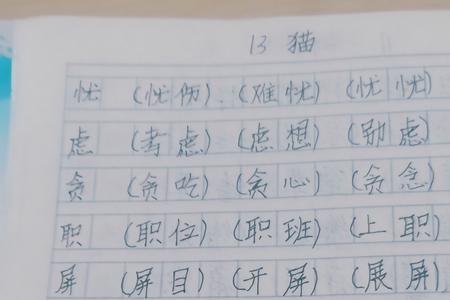 13 猫
忧 (忧伤) (难忧) (忧忧)
虑 (考虑) (虑想) (虑)
贪 (贪吃) (贪心) (贪念)
职 (职位) (职班) (上职)
屏 (屏目) (开屏) (展屏)